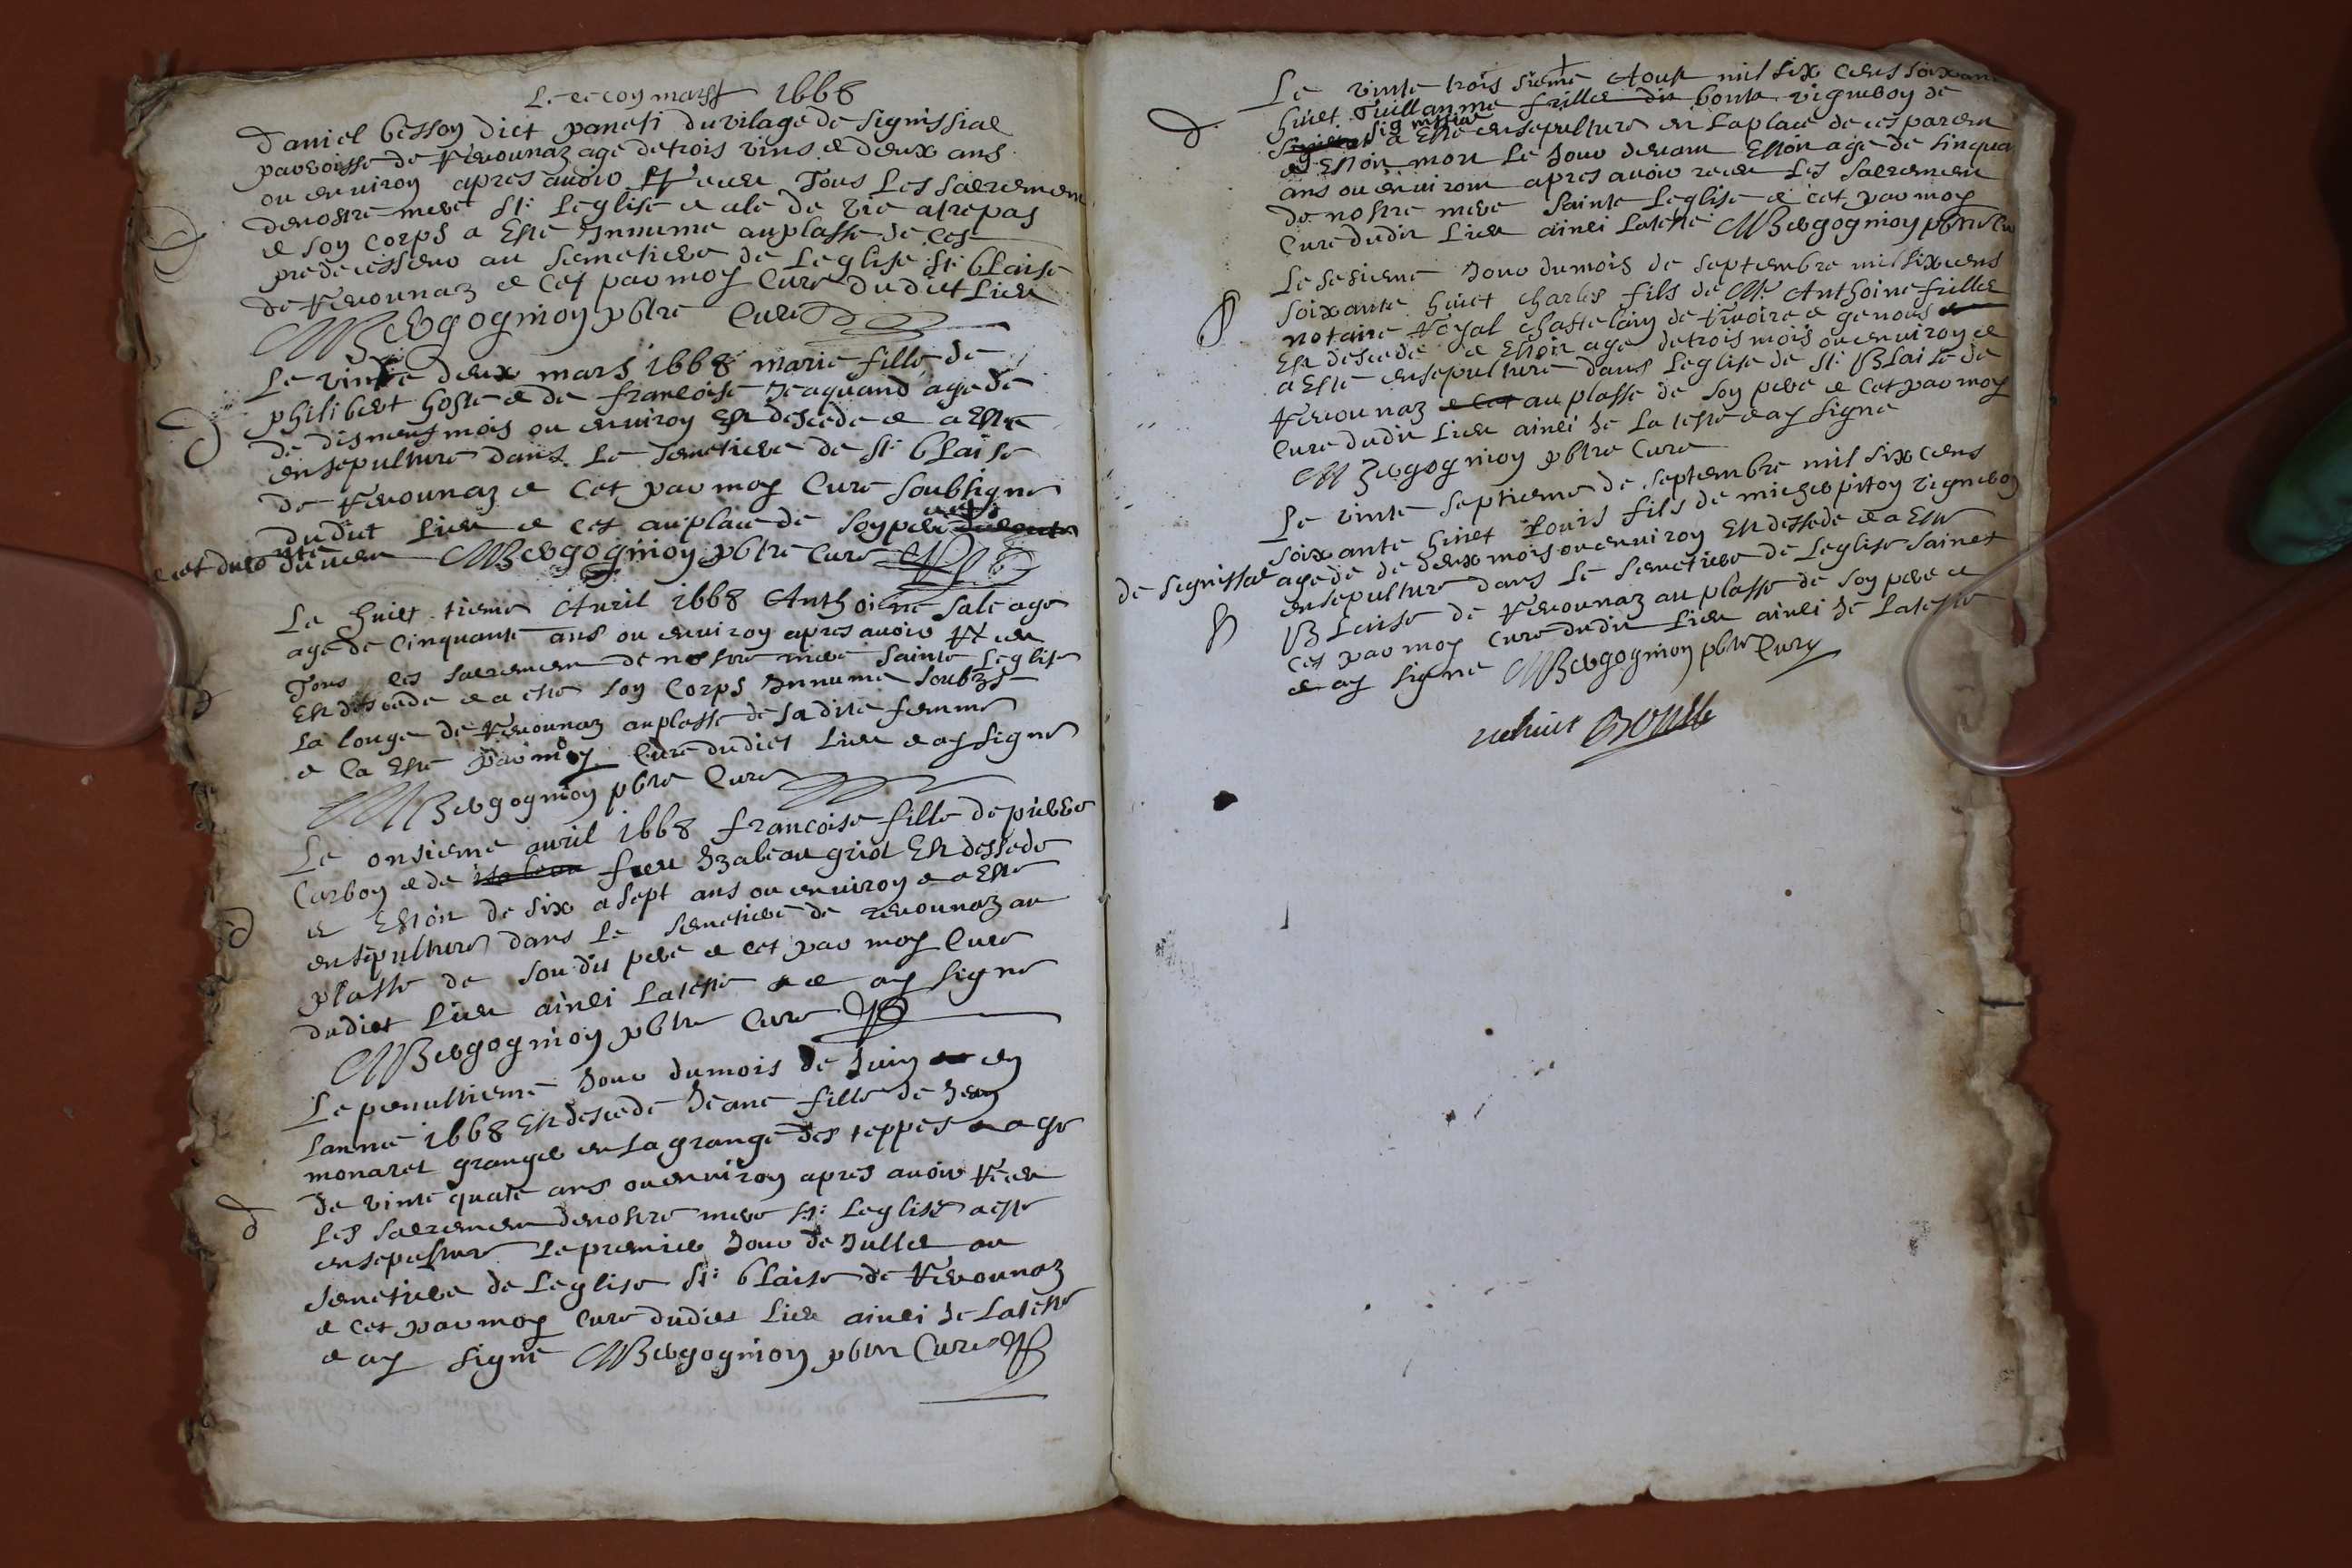 Le secon mars 1668
Daniel besson dict paneti du vilage de signissial
parroisse de Revonnaz age de trois vins e deux ans
ou environ apres avoir Receu Tous Les sacremen
de nostre mere St: Leglise e ale de vie a trepas
e son corps a Esté Innumé au plasse de ces
predecesseur au semetiere de Leglise St: blaise
de Revonnaz e Cet par moy Curé dudict Lieu
MBergognion pbtre Curé
Le vinte deux mars 1668 marie fille de
philibert hoste e de francoise Jaquand agé de
de disneuf mois ou environ Est descedé e a Esté
ensepulturé dans Le semetiere de St: blaise
de Revonnaz e Cet par moy Curé soubsigné
dudict Lieu e cet au place de son pere
MBergognion pbtre Curé
Le huict tieme Avril 1668 Anthoine sale agé
agé de Cinquante ans ou environ apres avoir Receu
Tous les sacremen de nostre mere sainte Leglise
Est descedé e a esté son Corps Innumé soubz
La louge de Revonnaz au plasse de sa dite femme
e Ca Esté par moy Curé dudict Lieu e ay signé
MBergognion pbtre Curé
Le onsieme avril 1668 francoise fille de pierre
Carbon e de feu Izabeau griot Est dessedé
e Estoit de six a sept ans ou environ e a Esté
ensepulturé dans Le semetiere de revonnaz au
plasse de son dit pere e cet par moy Curé
dudict Lieu ainci Lateste e ay signé
MBergognion pbtre Curé
Le penultieme Jour du mois de Juin en
Lanneé 1668 Est descedé Jeane fille de Jean
monaret granger en La grange des teppes agé
de vinte quatre ans ou environ apres avoir Receu
Les sacremen de nostre mere St: Leglise a esté
ensepulturé Le premier Jour de Jullet au
semetiere de Leglise St: blaise de Revonnaz
e cet par moy Curé dudict Lieu ainci Je Lateste
e ay signé MBergognion pbtre Curé
Le vinte trois sieme Aoust mil six cens soixan
huict Guillaumme fillie dit bonte vigneron de
signissiat
a Esté ensepulturé en La place de ces paren
e Estoit mort Le Jour devant Estoit agé de sinqua
ans ou environ apres avoir receu Les sacremen
de nostre mere sainte Leglise e cet par moy
Curé dudit Lieu ainci Lateste MBergognion pbtre Cu
Le sesieme Jour du mois de septembre mil six cens
soixante huict Charles fils de Mr. Anthoine fillie
notaire Royal Chastelain de Rivoire e genoud
Est descedé e Estoit age de trois mois ou environ e
a Esté ensepulturé dans Leglise de St: Blaise de
Revonnaz e cet au plasse de son pere e Cet par moy
Curé dudit Lieu ainci Je La teste e ay signé
MBergognion pbtre Curé
Le vinte septieme de septembre mil six cens
soixante huict Louis fils de michel piton vigneron
de signissiat agé de de deux mois ou environ Est dessedé e a Esté
ensepulturé dans Le semetiere de Leglise sainct
Blaise de Revonnaz au plasse de son pere e
Cet par moy Curé dudit Lieu ainci Je Lateste
e ay signé MBergognion pbtre Curé